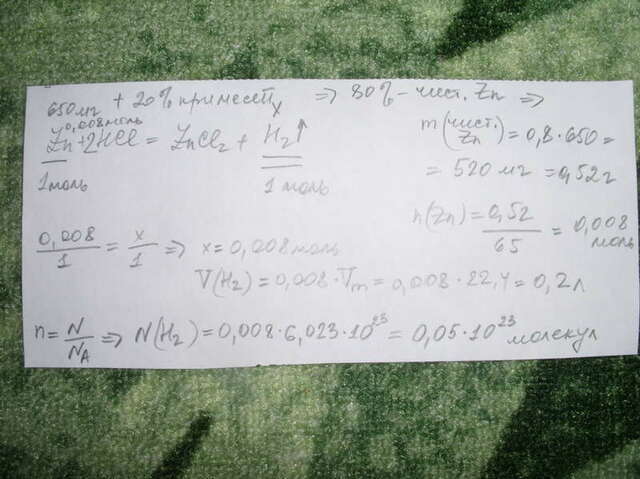 650 мг + 20% примесей => 80% - чист. Zn =>
0,008 моль x
Zn + 2HCl = ZnCl₂ + H₂↑
1 моль 1 моль
m (чист. Zn) = 0,8 · 650 =
= 520 мг = 0,52 г
n(Zn) = 0,52 / 65 = 0,008 моль
0,008 / 1 = x / 1 => x = 0,008 моль
V(H₂) = 0,008 · Vm = 0,008 · 22,4 = 0,2 л
n = N / NA => N(H₂) = 0,008 · 6,023 · 10²³ = 0,05 · 10²³ молекул